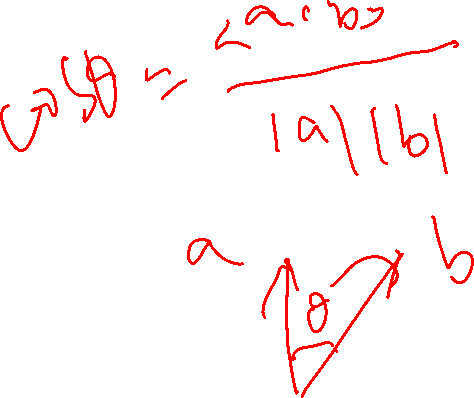 cosθ = <a,b> / |a||b|
a b
θ